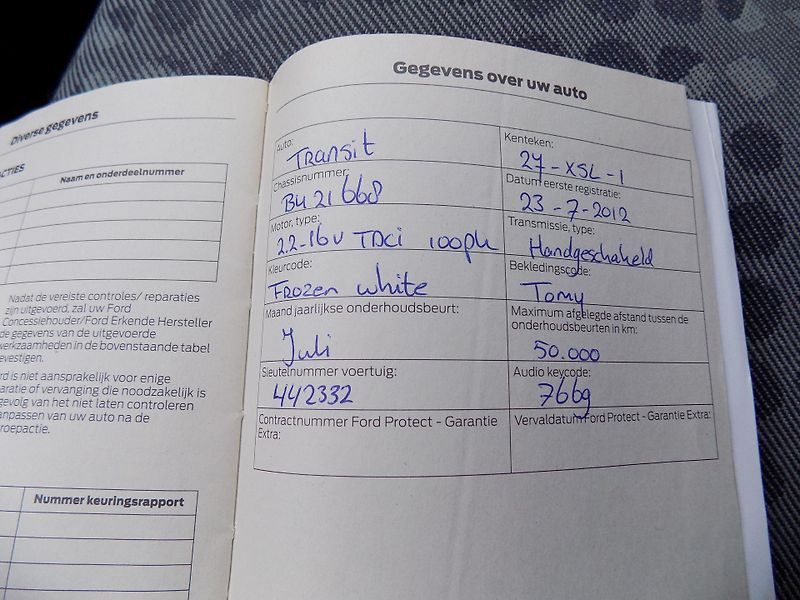 Diverse gegevens
ACTIES
Naam en onderdeelnummer
Nadat de vereiste controles/ reparaties
zijn uitgevoerd, zal uw Ford
Concessiehouder/Ford Erkende Hersteller
de gegevens van de uitgevoerde
werkzaamheden in de bovenstaande tabel
evestigen.
rd is niet aansprakelijk voor enige
aratie of vervanging die noodzakelijk is
gevolg van het niet laten controleren
anpassen van uw auto na de
roepactie.
Nummer keuringsrapport
Gegevens over uw auto
Auto:
Transit
Kenteken:
27-XSL-1
Chassisnummer:
BU 21668
Datum eerste registratie:
23-7-2012
Motor, type:
2.2-16v TDCi 100pk
Transmissie, type:
Handgeschakeld
Kleurcode:
Frozen white
Bekledingscode:
Tomy
Maand jaarlijkse onderhoudsbeurt:
Juli
Maximum afgelegde afstand tussen de
onderhoudsbeurten in km:
50.000
Sleutelnummer voertuig:
442332
Audio keycode:
7669
Contractnummer Ford Protect - Garantie
Extra:
Vervaldatum Ford Protect - Garantie Extra: